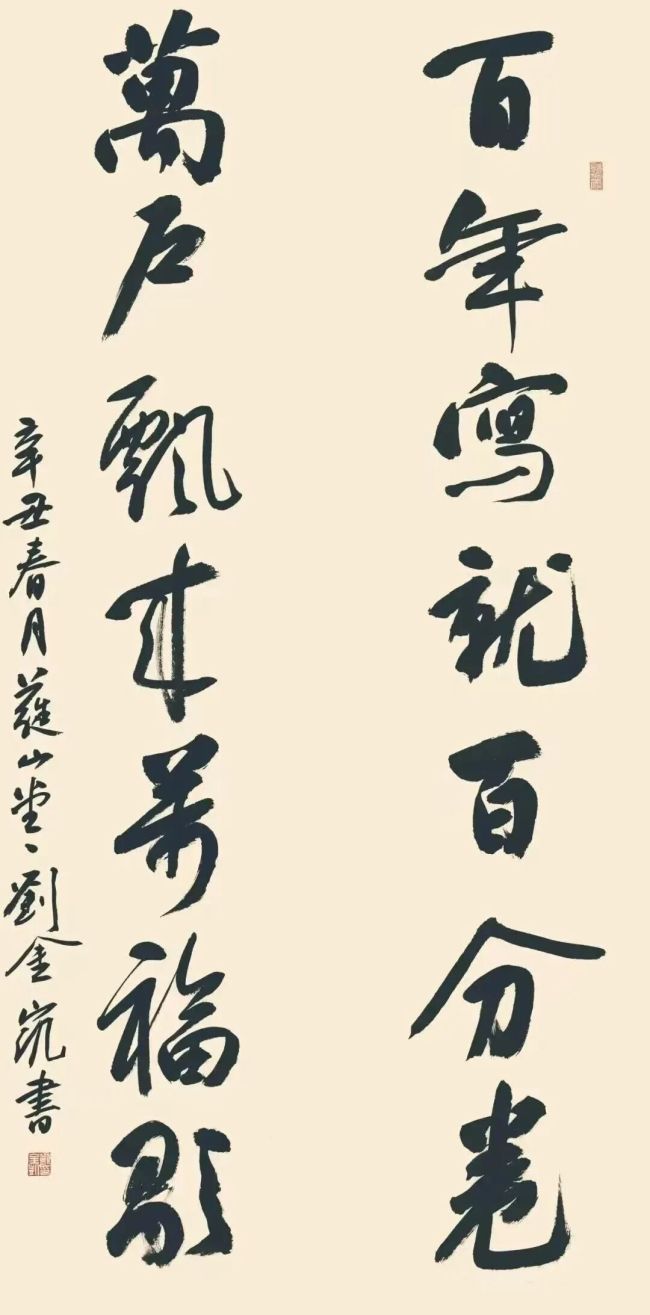 百年寫就百分卷
萬戶飄來萬福歌
辛丑春月蘿山堂劉金凱書